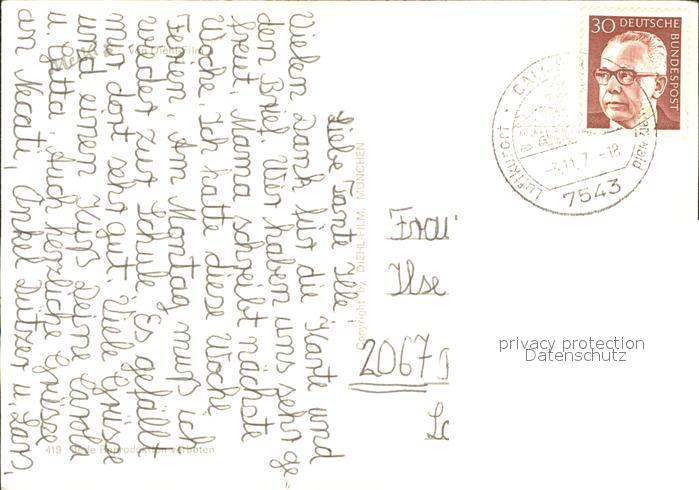 Mecki
von Diehl-Film
Liebe Tante Ille,
Vielen Dank für die Karte und
den Brief. Wir haben uns sehr ge-
freut. Mama schreibt nächste
Woche. Ich hatte diese Woche
Ferien. Am Montag muß ich
wieder zur Schule. Es gefällt
mir dort sehr gut. Viele Grüsse
und einen Kuß Deine Carola
u. Britta. Auch herzliche Grüsse
an Necati, Onkel
419 Jede Reproduktion verboten
Copyright by DIEHL-FILM, MÜNCHEN
30 DEUTSCHE
BUNDESPOST
Luftkurort
wald
-3.11.7 -18
7543
Frau
Ilse
2067
privacy protection
Datenschutz